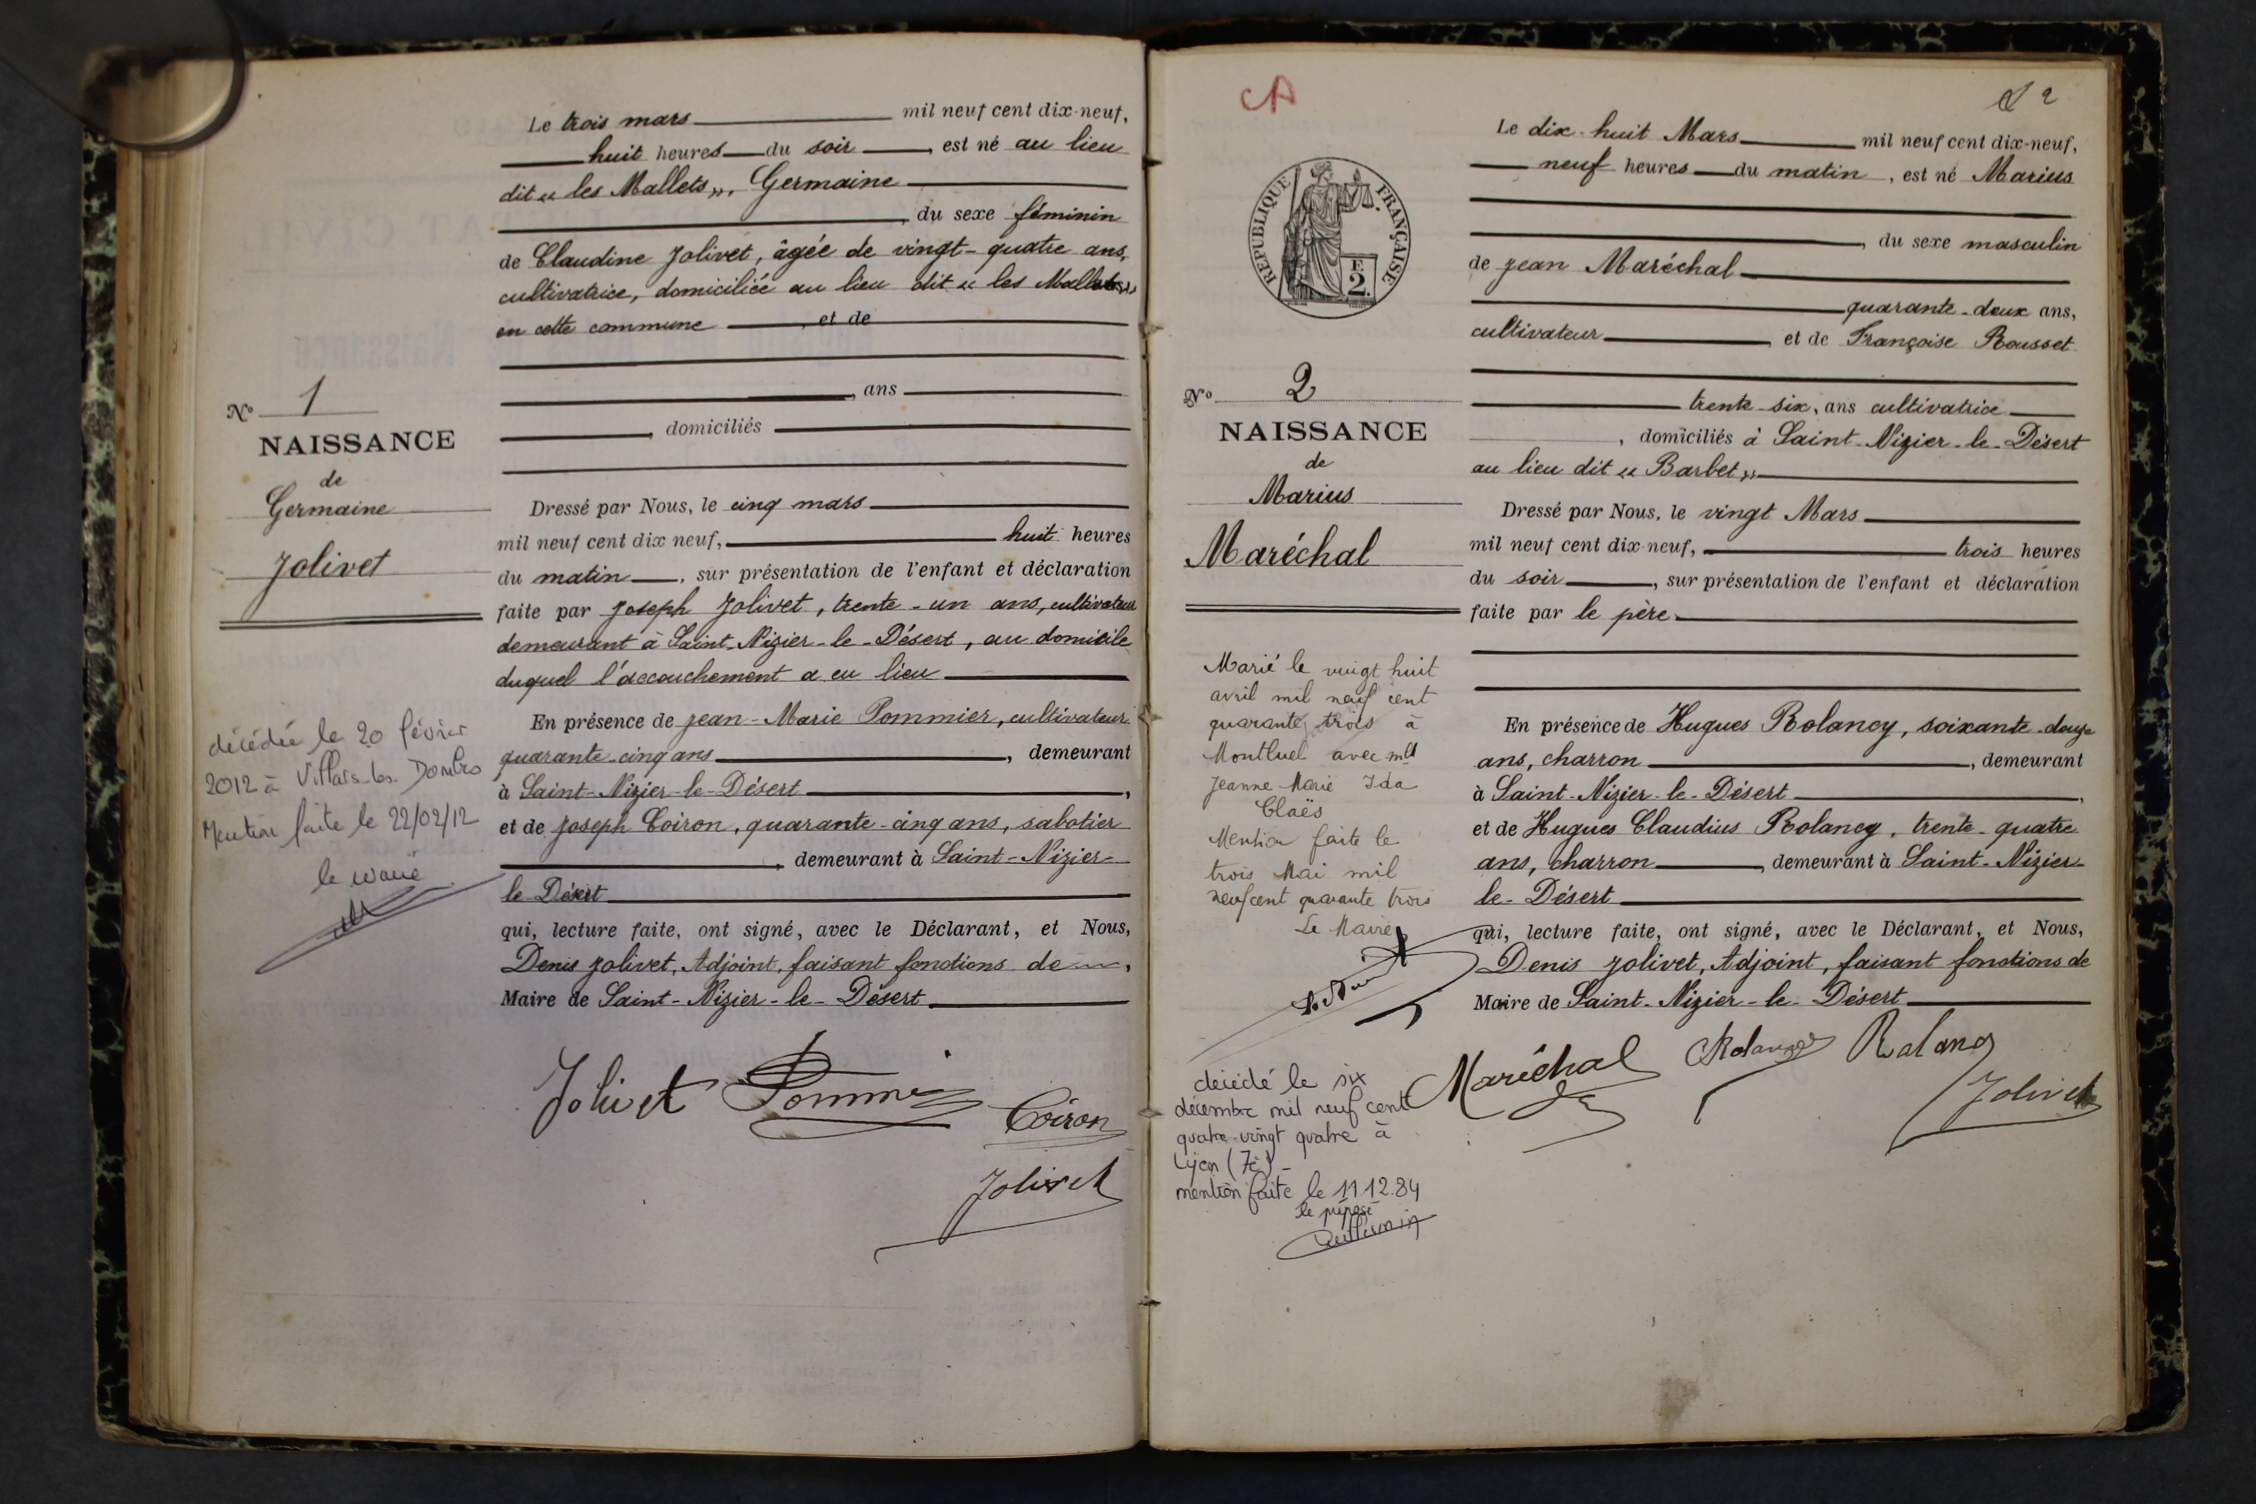 Le trois mars mil neuf cent dix-neuf,
huit heures du soir, est né au lieu
dit « les Mallets », Germaine
, du sexe féminin
de Claudine Jolivet, âgée de vingt-quatre ans,
cultivatrice, domiciliée au lieu dit « les Mallets »
en cette commune, et de
, ans
, domiciliés
Nº 1
NAISSANCE
de
Germaine
Jolivet
Dressé par Nous, le cinq mars
mil neuf cent dix neuf, huit heures
du matin, sur présentation de l'enfant et déclaration
faite par Joseph Jolivet, trente-un ans, cultivateur
demeurant à Saint-Nizier-le-Désert, au domicile
duquel l'accouchement a eu lieu
En présence de Jean-Marie Pommier, cultivateur
quarante-cinq ans, demeurant
à Saint-Nizier-le-Désert,
et de Joseph Coiron, quarante-cinq ans, sabotier
, demeurant à Saint-Nizier-
le-Désert
qui, lecture faite, ont signé, avec le Déclarant, et Nous,
Denis Jolivet, Adjoint, faisant fonctions de
Maire de Saint-Nizier-le-Désert
décédée le 20 février
2012 à Villars-les-Dombes
Mention faite le 22/02/12
le maire
Jolivet Pommier
Coiron
Jolivet
CA
2
REPUBLIQUE FRANÇAISE
E
2.
Le dix-huit Mars mil neuf cent dix-neuf,
neuf heures du matin, est né Marius
, du sexe masculin
de Jean Maréchal
quarante-deux ans,
cultivateur, et de Françoise Rousset
trente-six, ans cultivatrice
, domiciliés à Saint-Nizier-le-Désert
au lieu dit « Barbet »
Nº 2
NAISSANCE
de
Marius
Maréchal
Dressé par Nous, le vingt Mars
mil neuf cent dix-neuf, trois heures
du soir, sur présentation de l'enfant et déclaration
faite par le père
En présence de Hugues Rolancy, soixante-douze
ans, charron, demeurant
à Saint-Nizier-le-Désert,
et de Hugues Claudius Rolancy, trente-quatre
ans, charron, demeurant à Saint-Nizier-
le-Désert
qui, lecture faite, ont signé, avec le Déclarant, et Nous,
Denis Jolivet, Adjoint, faisant fonctions de
Maire de Saint-Nizier-le-Désert
Marié le vingt huit
avril mil neuf cent
quarante trois à
Montluel avec mlle
Jeanne Marie Ida
Claës
Mention faite le
trois Mai mil
neuf cent quarante trois
Le Maire
Maréchal Rolancy Rolancy
Jolivet
décédé le six
décembre mil neuf cent
quatre-vingt quatre à
Lyon (7è)-
mention faite le 11 12.84
le préposé